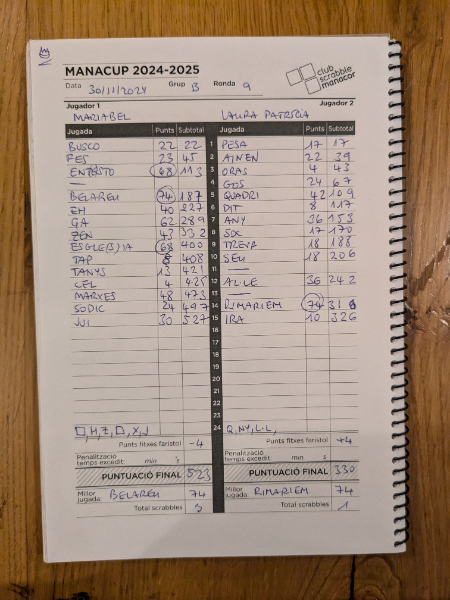 MANACUP 2024-2025
club scrabble manacor
Data 30/11/2024 Grup B Ronda 9
Jugador 1 Jugador 2
MARIABEL LAURA PATRICIA
Jugada Punts Subtotal Jugada Punts Subtotal
BUSCO 22 22 1 PESA 17 17
FES 23 45 2 AINEN 22 39
68 113 3 ORAS 4 43
— 4 GOS 24 67
BELAREU 74 187 5 QUADRI 42 109
EH 40 227 6 DIT 8 117
GA 62 289 7 ANY 36 153
ZEN 43 332 8 SOC 17 170
ESGLE(S)IA 68 400 9 TREVA 18 188
TAP 8 408 10 SEU 18 206
TANYS 13 421 11 —
CEL 4 425 12 AL·LE 36 242
MARXES 48 473 13
SODIC 24 497 14 RIMARIEM 74 316
JUI 30 527 15 IRA 10 326
16
17
18
19
20
21
22
23
□, H, Z, □, X, J 24 Q, NY, L·L,
Punts fitxes faristol -4 Punts fitxes faristol +4
Penalització temps excedit: min s Penalització temps excedit: min s
PUNTUACIÓ FINAL 523 PUNTUACIÓ FINAL 330
Millor jugada: BELAREU 74 Millor jugada: RIMARIEM 74
Total scrabbles 3 Total scrabbles 1